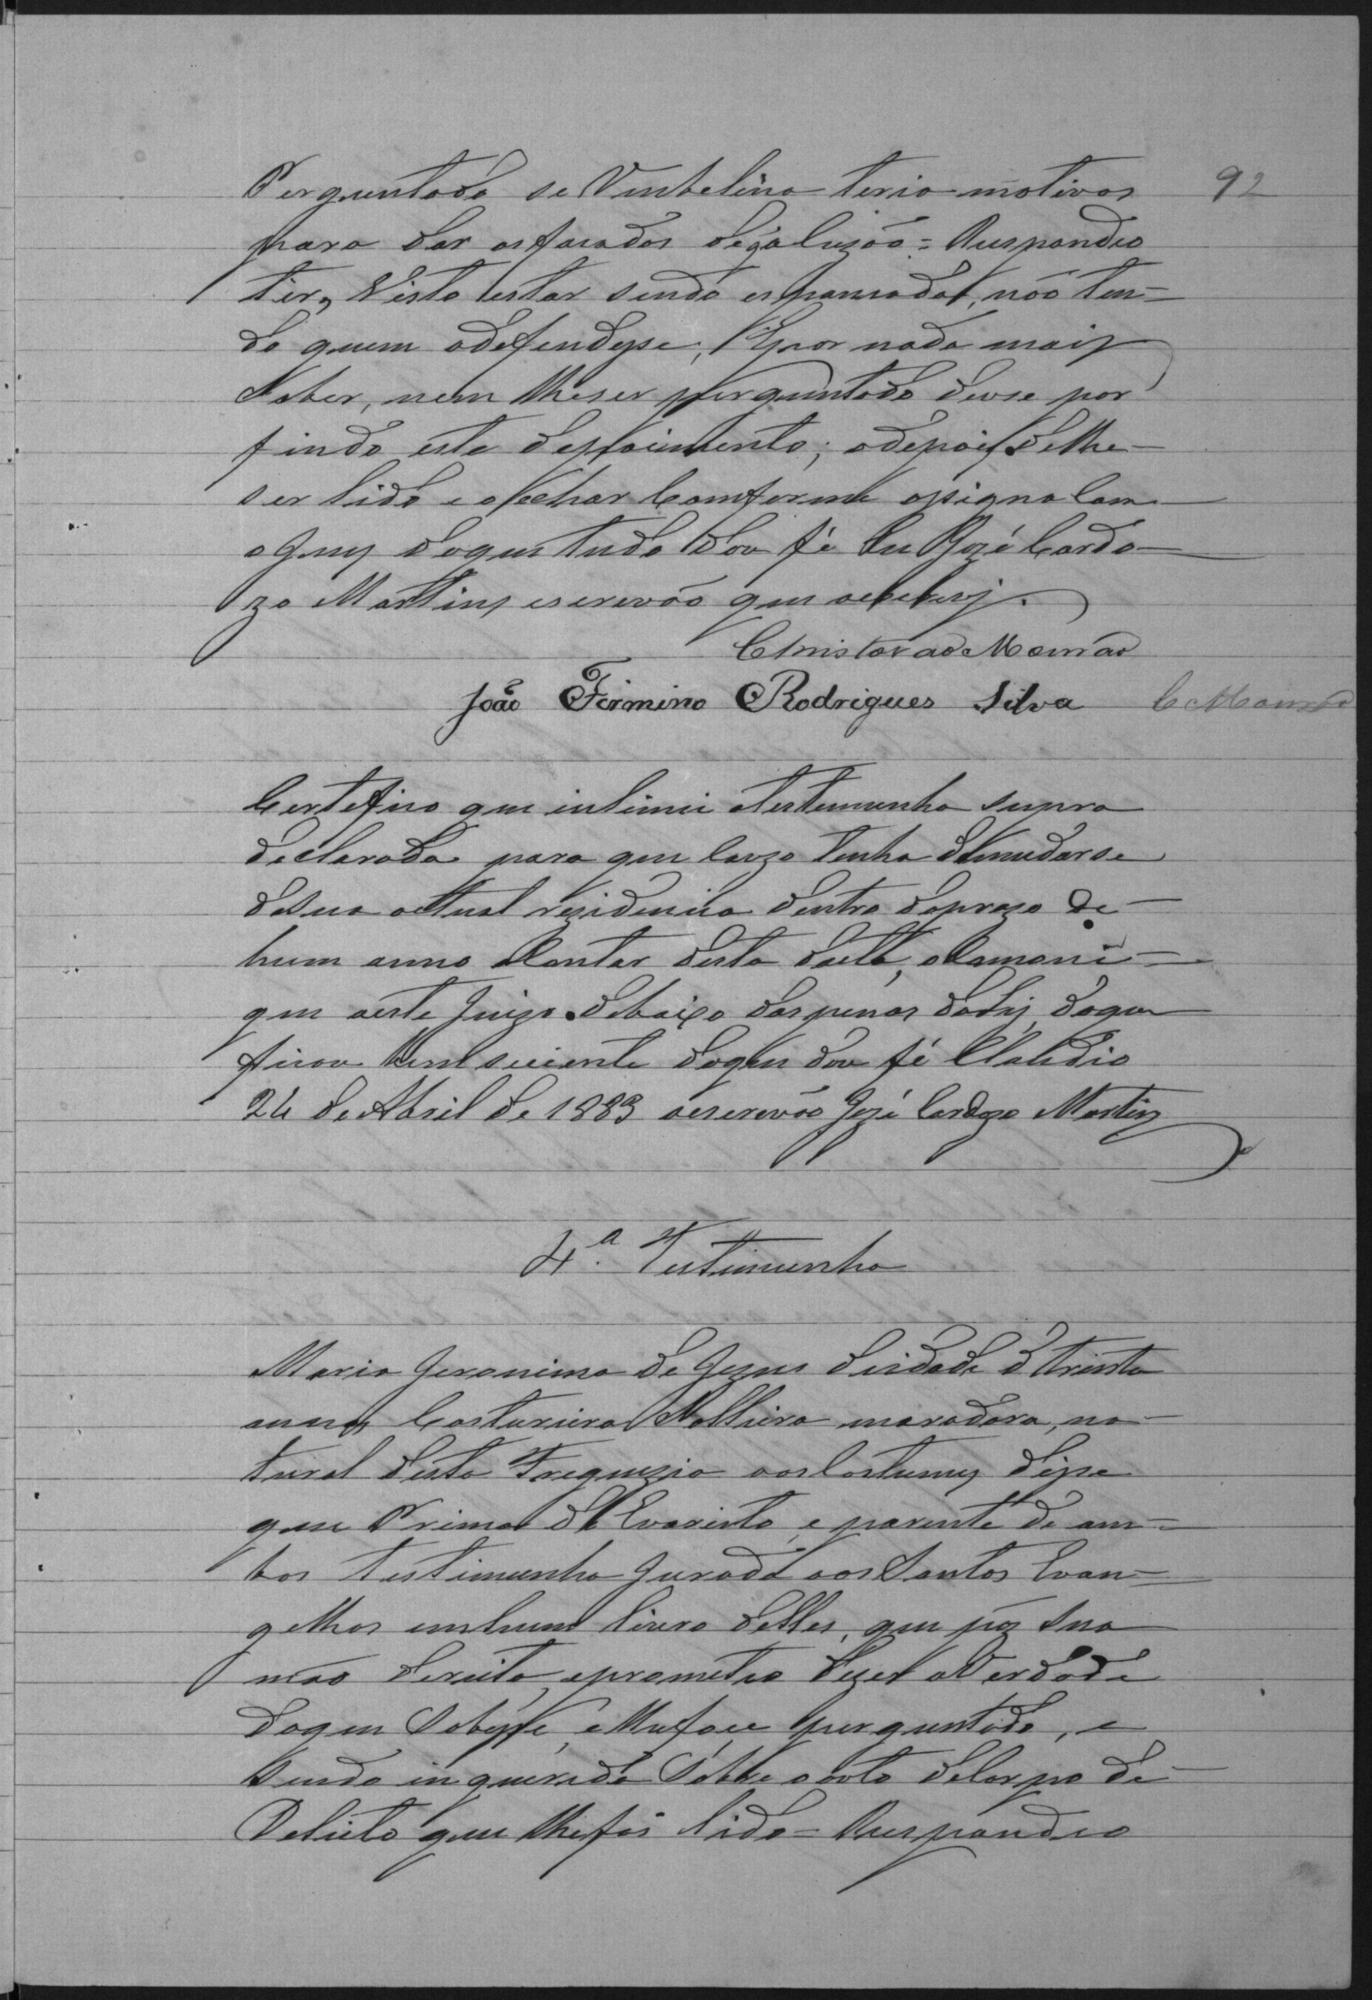 92
Perguntado se Umbelina teria motivos
para dar as facadas de galuzão = Respondeo
ter, Visto estar sendo espancada, não ten-
do quem adefendesse, Epor nada mais
Saber, nem lheser perguntado deuse por
findo este depoimento; edepois delhe
ser lido e o achar Comforme assigna Com
o Juiz doque tudo dou fé Eu José Cardo-
zo Martins escrevão que oescrevi.
Christovao Mourão
João Firmino Rodrigues Silva C Mourão
Certefico que intimei atestemunha supra
declarada para que Cauzo tenha demudarse
desua actual rezidencia dentro doprazo de
hum anno Acontar desta data, oComoni-
que aeste Juizo debaixo daspenas daLei, doque
ficou bem sciente doque dou fé Claudio
24 de Abril de 1883 oescrevão José Cardozo Martins
4.ª Testimunha
Maria Jeronima de Jezus deidade de trinta
annos Costureira Solteira moradora, na-
tural desta Freguezia aosCostumes disse
que Prima de Evaristo, e parente de am-
bos testimunha Jurada aos Santos Evan-
gelhos emhum livro delles, que pôz sua
mão dereita, eprometeo dizer aVerdade
doque Sobesse, elhefosse perguntado, e
Sendo inquerida Sobre oauto deCorpo de
Delicto que lhefoi lido = Respondeo